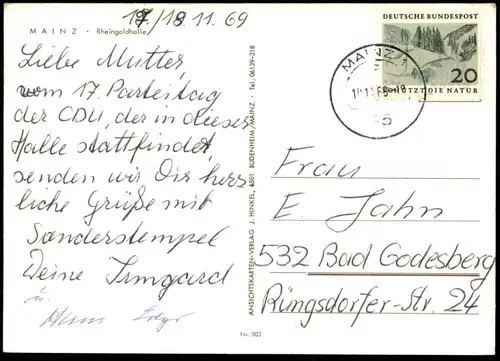 17/18.11.69
MAINZ - Rheingoldhalle
Liebe Mutter,
vom 17. Parteitag
der CDU, der in dieser
Halle stattfindet,
senden wir Dir herz
liche Grüße mit
Sonderstempel
Deine Irmgard
u.
Nr. 903
ANSICHTSKARTEN-VERLAG J. HINKEL, 6501 BUDENHEIM/MAINZ · Tel. 06139-318
DEUTSCHE BUNDESPOST
20
SCHÜTZT DIE NATUR
MAINZ 1
Frau
E. Jahn
532 Bad Godesberg
Rüngsdorfer-Str. 24